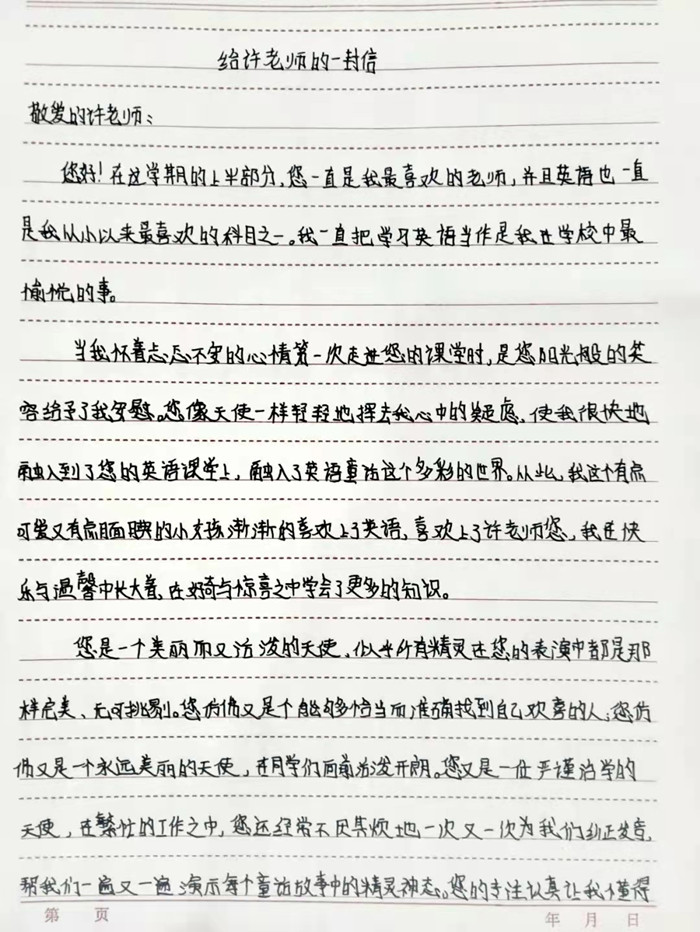 给许老师的一封信
敬爱的许老师：
您好！在这学期的上半部分，您一直是我最喜欢的老师，并且英语也一直
是我从小以来最喜欢的科目之一。我一直把学习英语当作是我在学校中最
愉悦的事。
当我怀着忐忑不安的心情第一次走进您的课堂时，是您阳光般的笑
容给予了我安慰。您像天使一样轻轻地挥去我心中的疑虑，使我很快地
融入到了您的英语课堂上，融入了英语童话这个多彩的世界。从此，我这个有点
可爱又有点腼腆的小女孩渐渐的喜欢上了英语，喜欢上了许老师您，我在快
乐与温馨中长大着，在好奇与惊喜之中学会了更多的知识。
您是一个美丽而又活泼的天使，似乎所有精灵在您的表演中都是那
样完美、无可挑剔。您仿佛又是个能够恰当而准确找到自己欢喜的人；您仿
佛又是一个永远美丽的天使，在同学们面前活泼开朗。您又是一位严谨治学的
天使，在繁忙的工作之中，您还经常不厌其烦地一次又一次为我们纠正发音，
帮我们一遍又一遍演示每个童话故事中的精灵神态。您的专注认真让我懂得
第 页 年 月 日